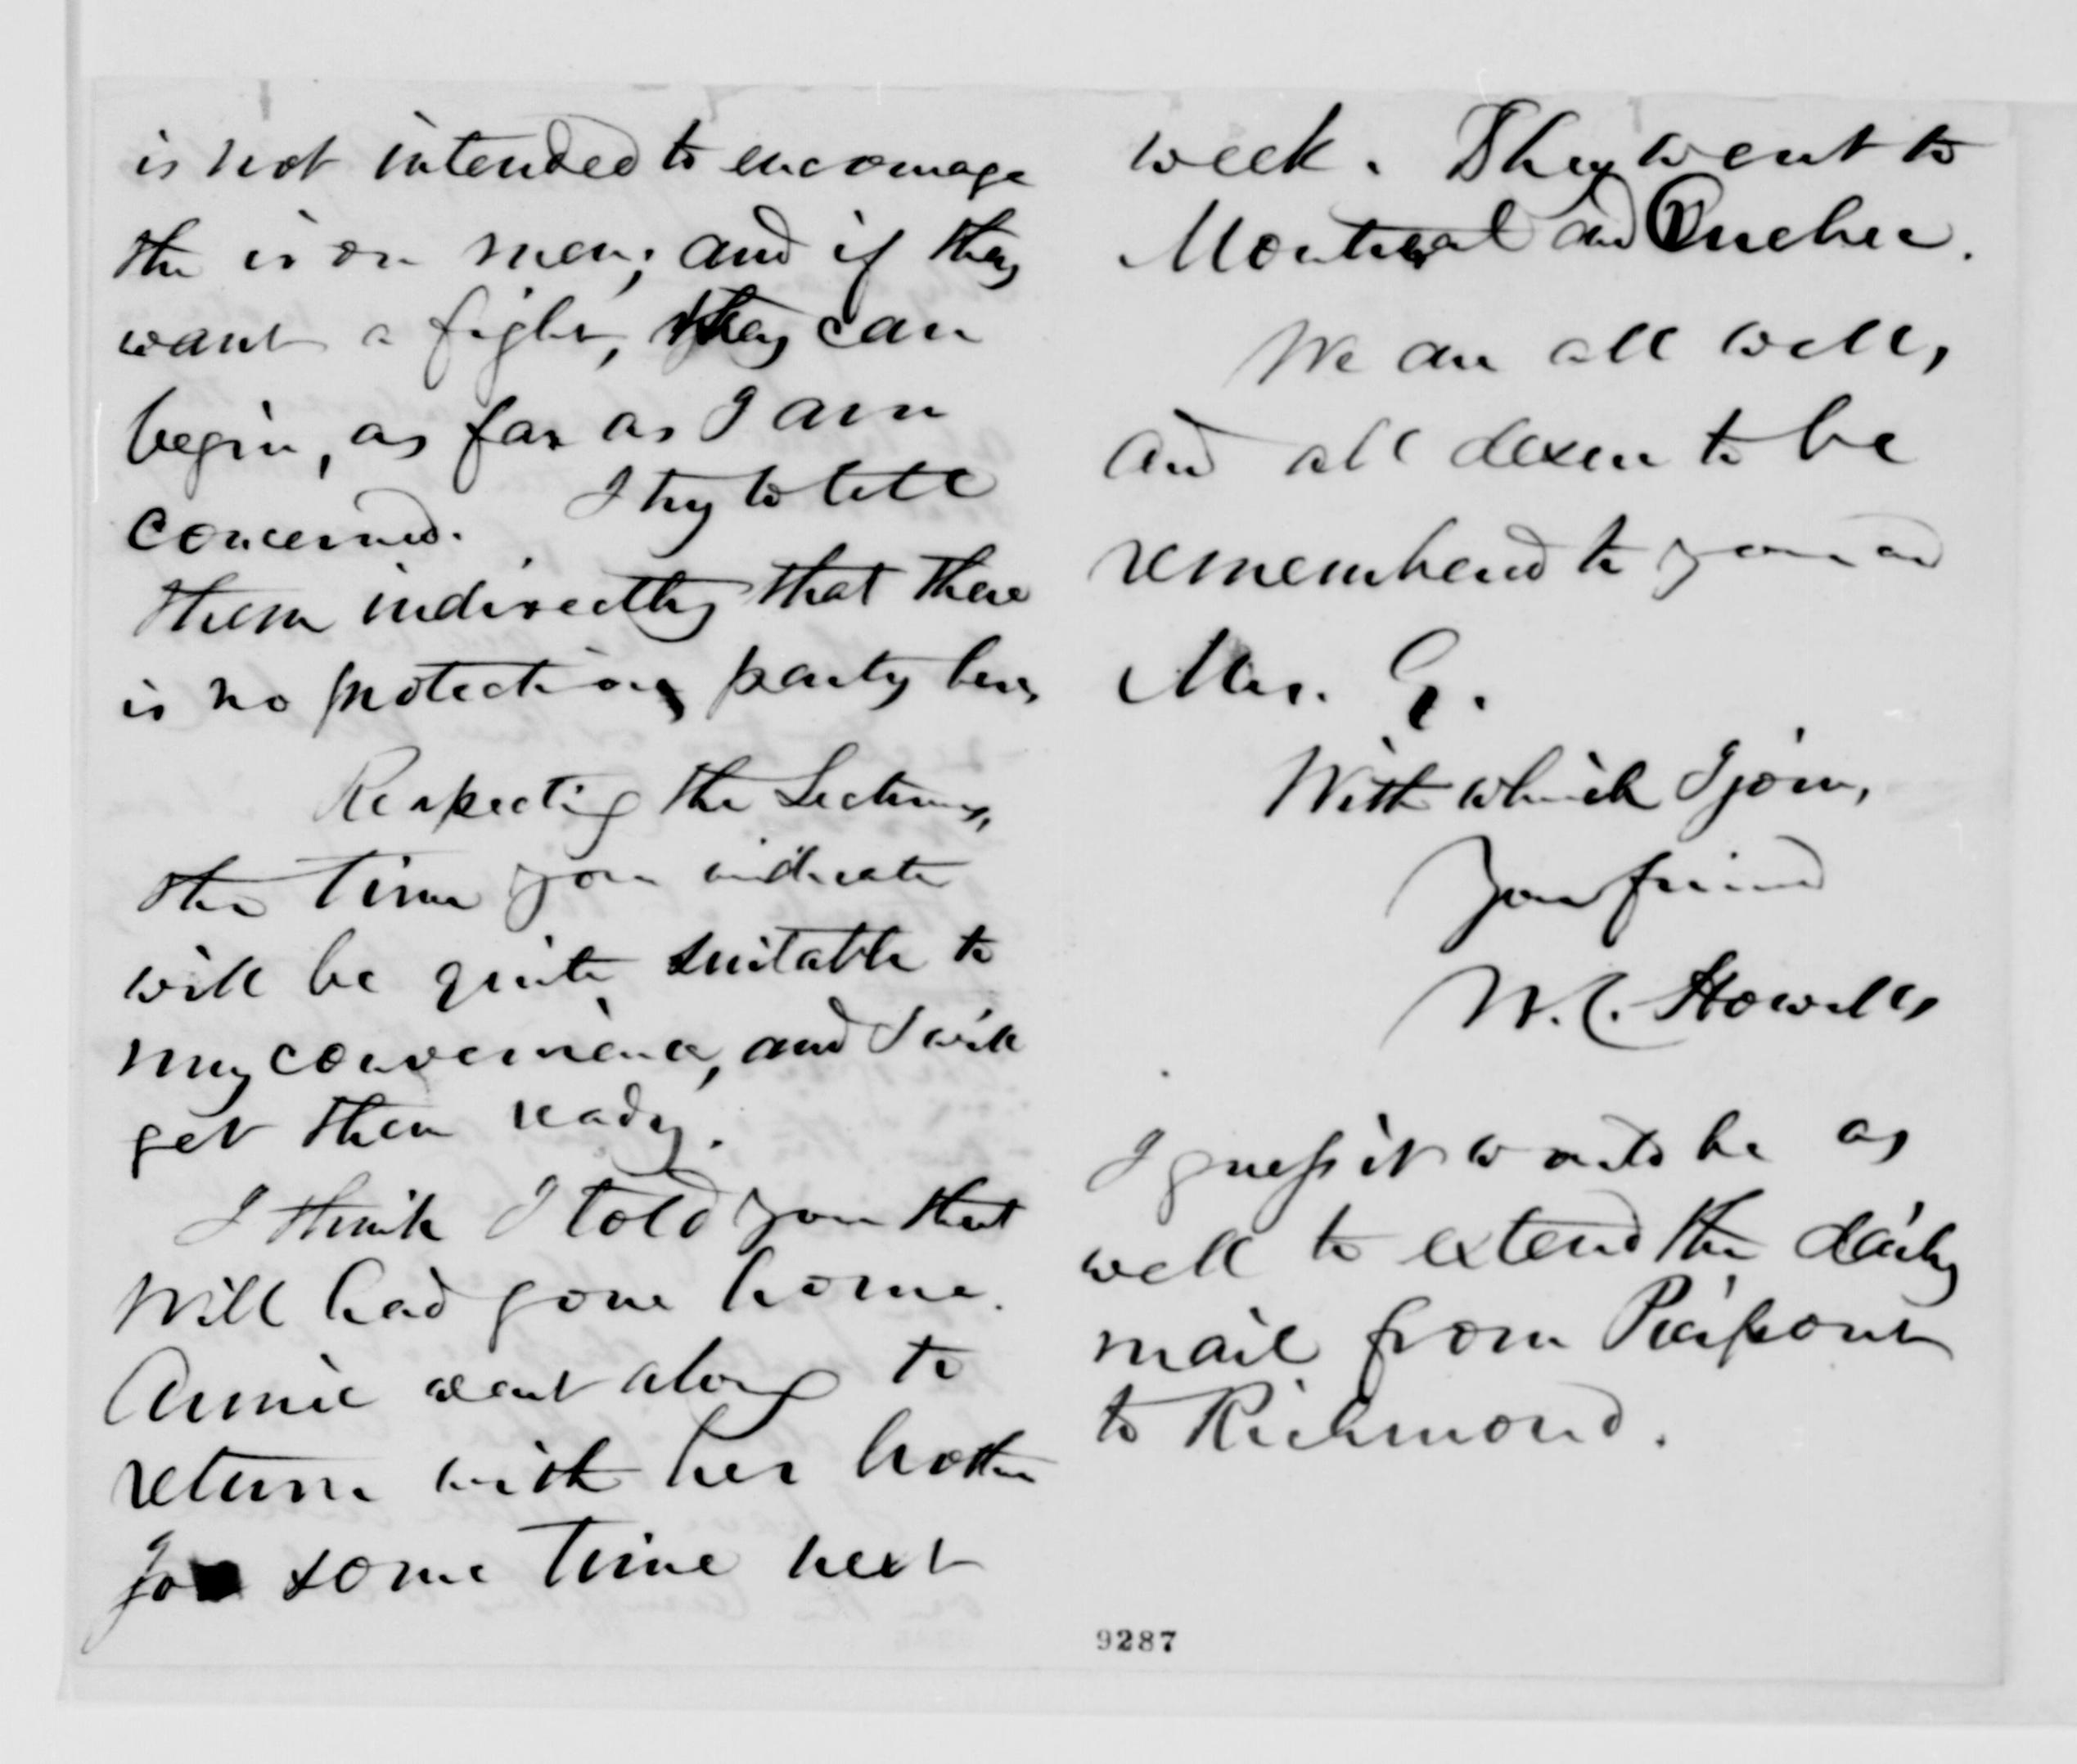 is not intended to encourage
the iron men; and if they
want a fight, they can
begin, as far as I am
concerned. I try to tell
them indirectly that there
is no protection party here,
Respecting the Lectures,
the time you indicate
will be quite suitable to
my convenience, and I will
get them ready.
I think I told you that
Will had gone home.
Annie went along to
return with her brother
Joe some time next
week. They went to
Montreal and Quebec.
We are all well,
and all desire to be
remembered to you and
Mrs. G.
With which I join,
Your friend
W. C. Howells
I guess it would be as
well to extend the daily
mail from Pierpont
to Richmond.
9287